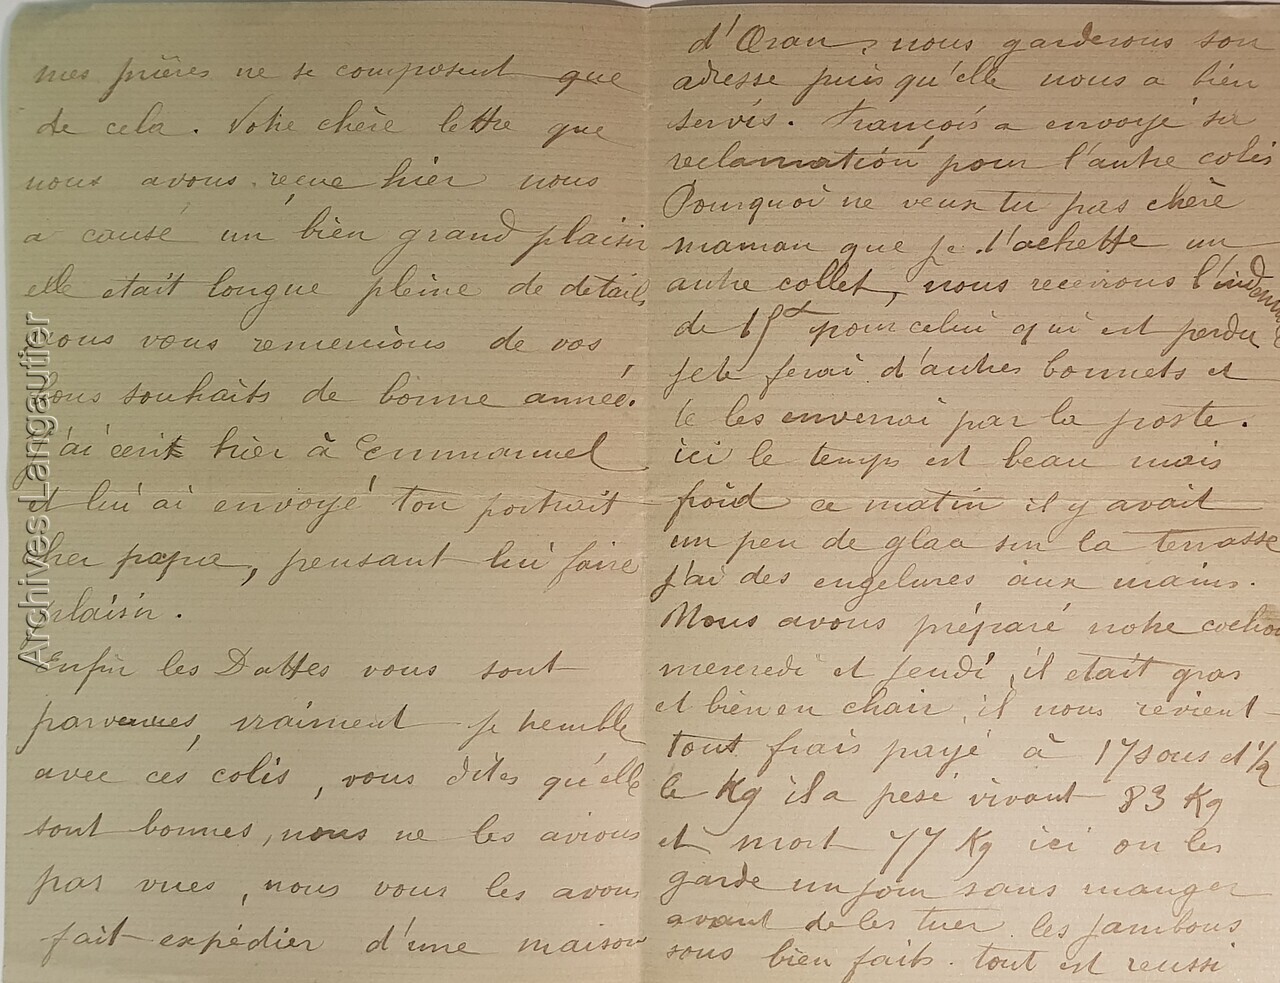 mes prières ne se composent que
de cela. Votre chère lettre que
nous avons reçue hier nous
a causé un bien grand plaisir
elle etait longue pleine de details
nous vous remercions de vos
bons souhaits de bonne année.
J'ai ecrit hier à Emmanuel
et lui ai envoyé ton portrait
cher papa, pensant lui faire
plaisir.
Enfin les Dattes vous sont
parvenues, vraiment je tremble
avec ces colis, vous dites qu'elle
sont bonnes, nous ne les avions
pas vues, nous vous les avons
fait expédier d'une maison
d'Oran, nous garderons son
adresse puisqu'elle nous a bien
servis. François a envoyé sa
reclamation pour l'autre colis
Pourquoi ne veux tu pas chère
maman que je t'achette un
autre collet, nous recevrons l'indemnité
de 15f pour celui qui est perdu
je te ferai d'autres bonnets et
te les enverrai par la poste.
ici le temps est beau mais
froid ce matin il y avait
un peu de glace sur la terrasse
j'ai des engelures aux mains.
Nous avons préparé notre cochon
mercredi et jeudi, il etait gras
et bien en chair, il nous revient
tout frais payé à 17 sous et 1/2
le Kg il a pesé vivant 83 Kg
et mort 77 Kg ici on les
garde un jour sans manger
avant de les tuer. les jambons
sous bien faits. tout est reussi
Archives Langautier